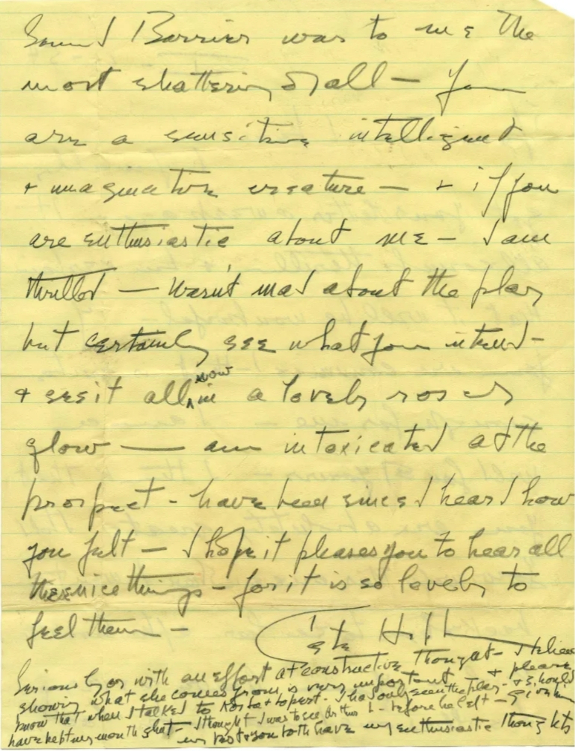 Sound Barrier was to me the
most shattering of all — You
are a sensitive intelligent
+ imaginative creature — + if you
are enthusiastic about me — I am
thrilled — Wasn't mad about the play
but certainly see what you intend -
+ see it all now in a lovely rosey
glow — am intoxicated at the
prospect - have been since I heard how
you felt — I hope it pleases you to hear all
these nice things - for it is so lovely to
feel them -
Kate Hepburn
Seriously or with an effort at constructive thought - I believe
showing what she comes from is very important + please
know that when I talked to he had only seen the play - + I should
have kept my mouth shut - I thought I was to see before he left -
you both have my enthusiastic thoughts